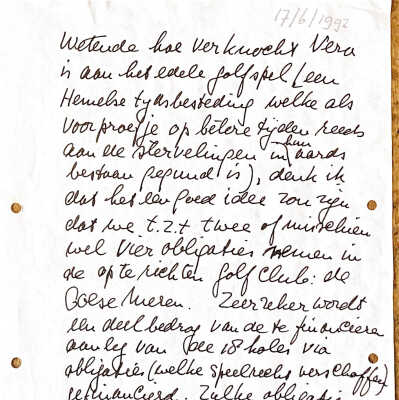 17/6/1992
Wetende hoe verknocht Vera
is aan het edele golfspel (een
Hemelse tydsbesteding welke als
voorproefje op betere tijden reeds
aan de stervelingen in hun aards
bestaan gegund is), denk ik
dat het een goed idee zou zijn
dat we t.z.t twee of misschien
wel vier obligaties nemen in
de op te richten golfclub: de
Goese Meren. Zeer zeker wordt
een deel bedrag van de te financieren
aanleg van de 18 holes via
obligaties (welke speelrecht verschaffen)
gefinancierd. Zulke obligatie